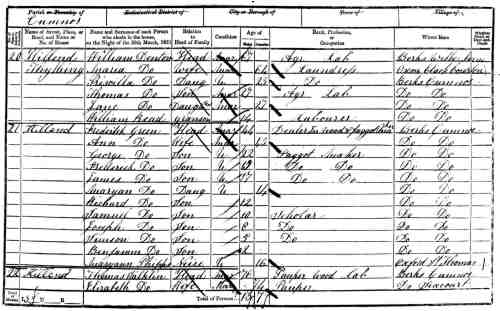 Parish or Township of Ecclesiastical District of City or Borough of Town of Village of
Cumnor
Name of Street, Place, or Road, and Name or No. of House Name and Surname of each Person who abode in the house, on the Night of the 30th March, 1851 Relation to Head of Family Condition Age of Rank, Profession, or Occupation Where Born
20 Hillend William Denton Head Mar 67 Agr lab Berks
Maria Do Wife Mar 62 Laundress Oxon
Priscilla Do Daug 23 Do Berks Cumnor
Thomas Do Son 27 Agr lab Do Do
Jane Do Daug 27 Do Do
William Read Grandson 14 Labourer Do Do
21 Hillend Frederick Green Head Mar 44 Dealer in wood Berks Cumnor
Ann Do Wife 43 Do Do
George Do Son U 22 Faggot maker Do Do
Frederick Do Son U 19 Do Do Do Do
James Do Son U 17 Do Do Do Do
Maryan Do Daug U 14 Do Do
Richard Do Son 12 Do Do
Samuel Do Son 10 Scholar Do Do
Joseph Do Son 8 Do Do Do
Simeon Do Son 5 Do Do Do
Benjamin Do Son 2 Do Do
Maryann Phipps Neice U 16 Oxford St Thomas
22 Hillend Thomas Head Mar 78 Pauper wood lab Berks Cumnor
Elizabeth Do Wife Mar 76 Pauper Do Seacourt
Total of Persons